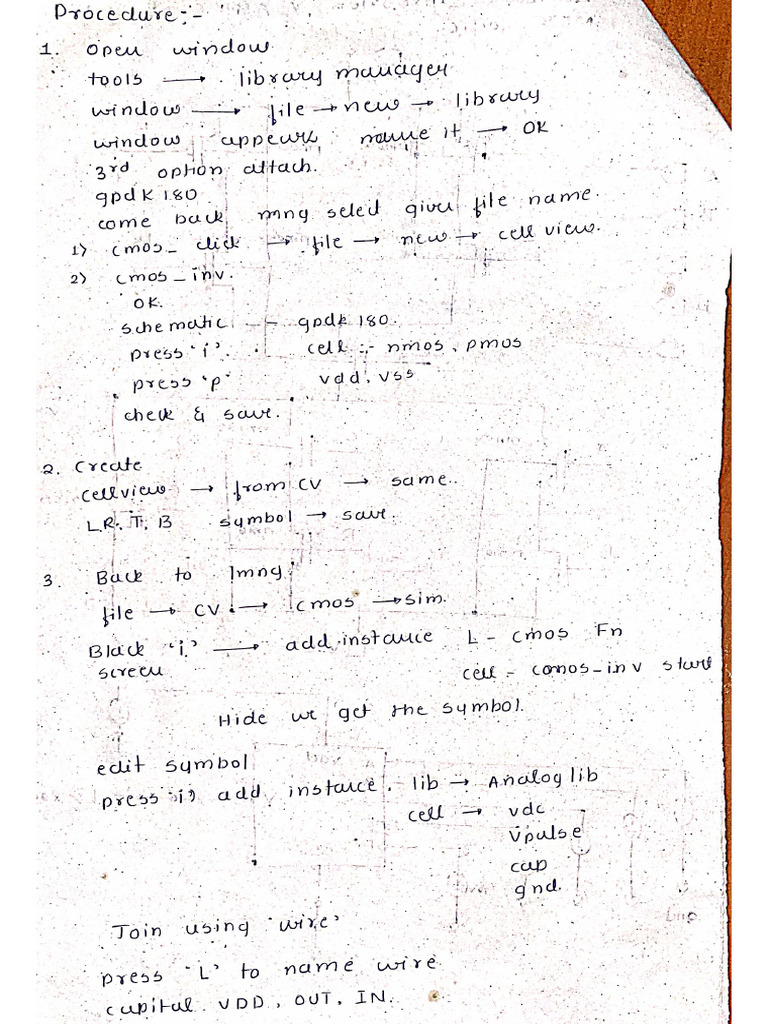 Procedure:-
1. Open window
tools → library manager
window → file → new → library
window appears name it → OK
3rd option attach.
gpdk 180
come back mng select given file name.
1) cmos_ click → file → new → cell view.
2) cmos_inv.
OK.
schematic -- gpdk 180.
press 'i'. cell :- nmos, pmos
press 'p' vdd, vss
check & save.
2. Create
cellview → from CV → same..
L.R. T. B symbol → save.
3. Back to lmng
file → CV → cmos → sim.
Black 'i' → add instance L - cmos Fn
screen cell - comos-inv
Hide we get the symbol.
edit symbol
press i) add instance. lib → Analog lib
cell → vdc
Vpulse
cap
gnd.
Join using 'wire'
press 'L' to name wire
capital VDD, OUT, IN.